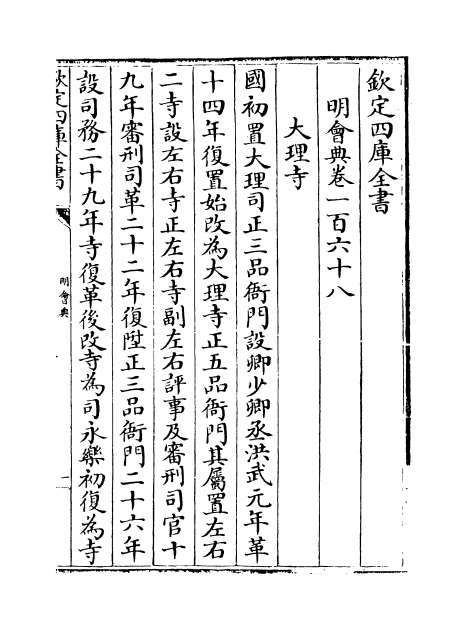 欽定四庫全書
明會典卷一百六十八
大理寺
國初置大理司正三品衙門設卿少卿丞洪武元年革
十四年復置始改為大理寺正五品衙門其屬置左右
二寺設左右寺正左右寺副左右評事及審刑司官十
九年審刑司革二十二年復陞正三品衙門二十六年
設司務二十九年寺復革後改寺為司永樂初復為寺
欽定四庫全書
明會典